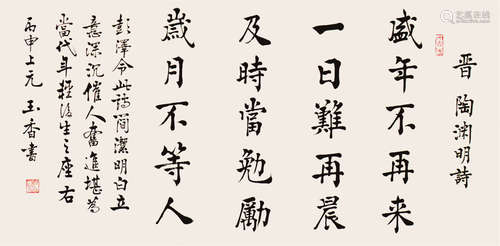 晋 陶渊明詩
盛年不再来
一日難再晨
及時當勉勵
歲月不等人
彭澤令此詩簡潔明白立
意深沉催人奮進堪為
當代年輕後生之座右
丙申上元 王香書